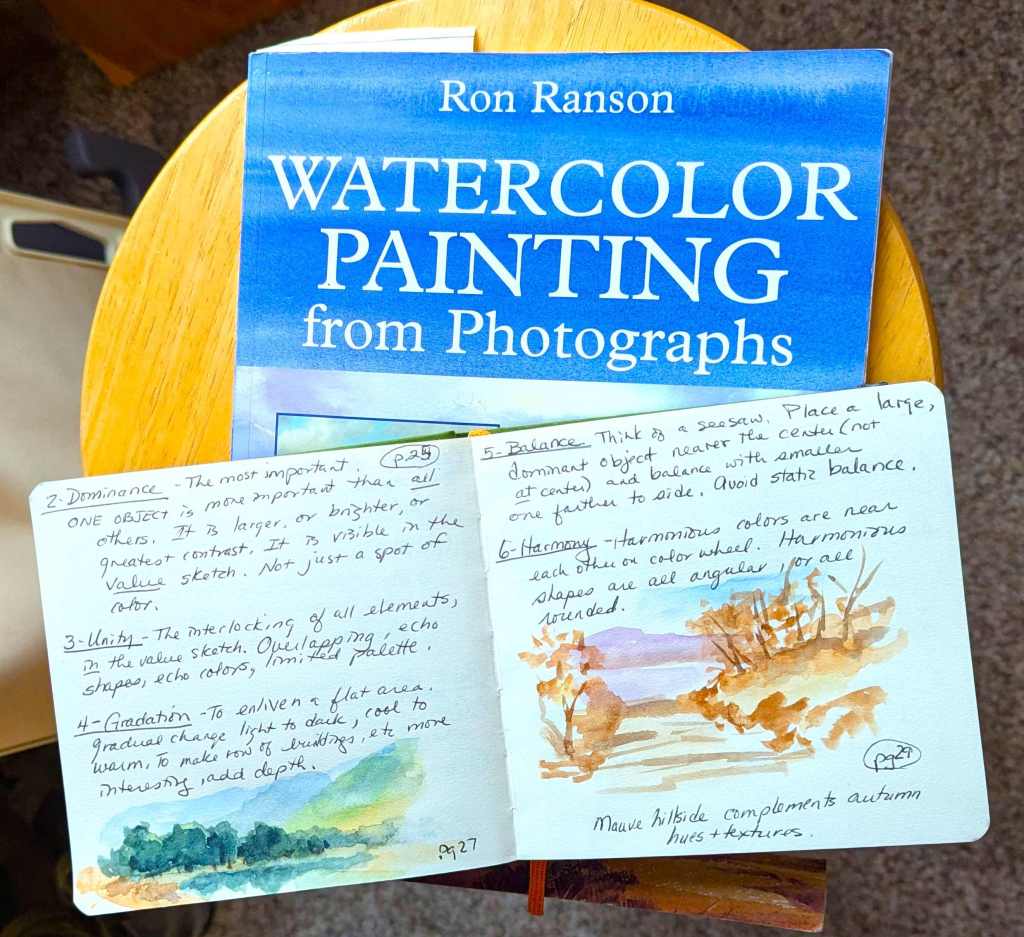 Ron Ranson
WATERCOLOR
PAINTING
from Photographs
p.25
2-Dominance - The most important.
ONE OBJECT is more important than all
others. It is larger, or brighter, or
greatest contrast. It is visible in the
value sketch. Not just a spot of
color.
3-Unity - The interlocking of all elements,
in the value sketch. Overlapping, echo
shapes, echo colors, limited palette.
4-Gradation - To enliven a flat area.
gradual change light to dark, cool to
warm, to make row of buildings, etc more
interesting, add depth.
pg 27
5-Balance Think of a seesaw. Place a large,
dominant object nearer the center (not
at center) and balance with smaller
one farther to side. Avoid static balance.
6-Harmony - Harmonious colors are near
each other on color wheel. Harmonious
shapes are all angular, or all
rounded.
pg 29
Mauve hillside complements autumn
hues + textures.